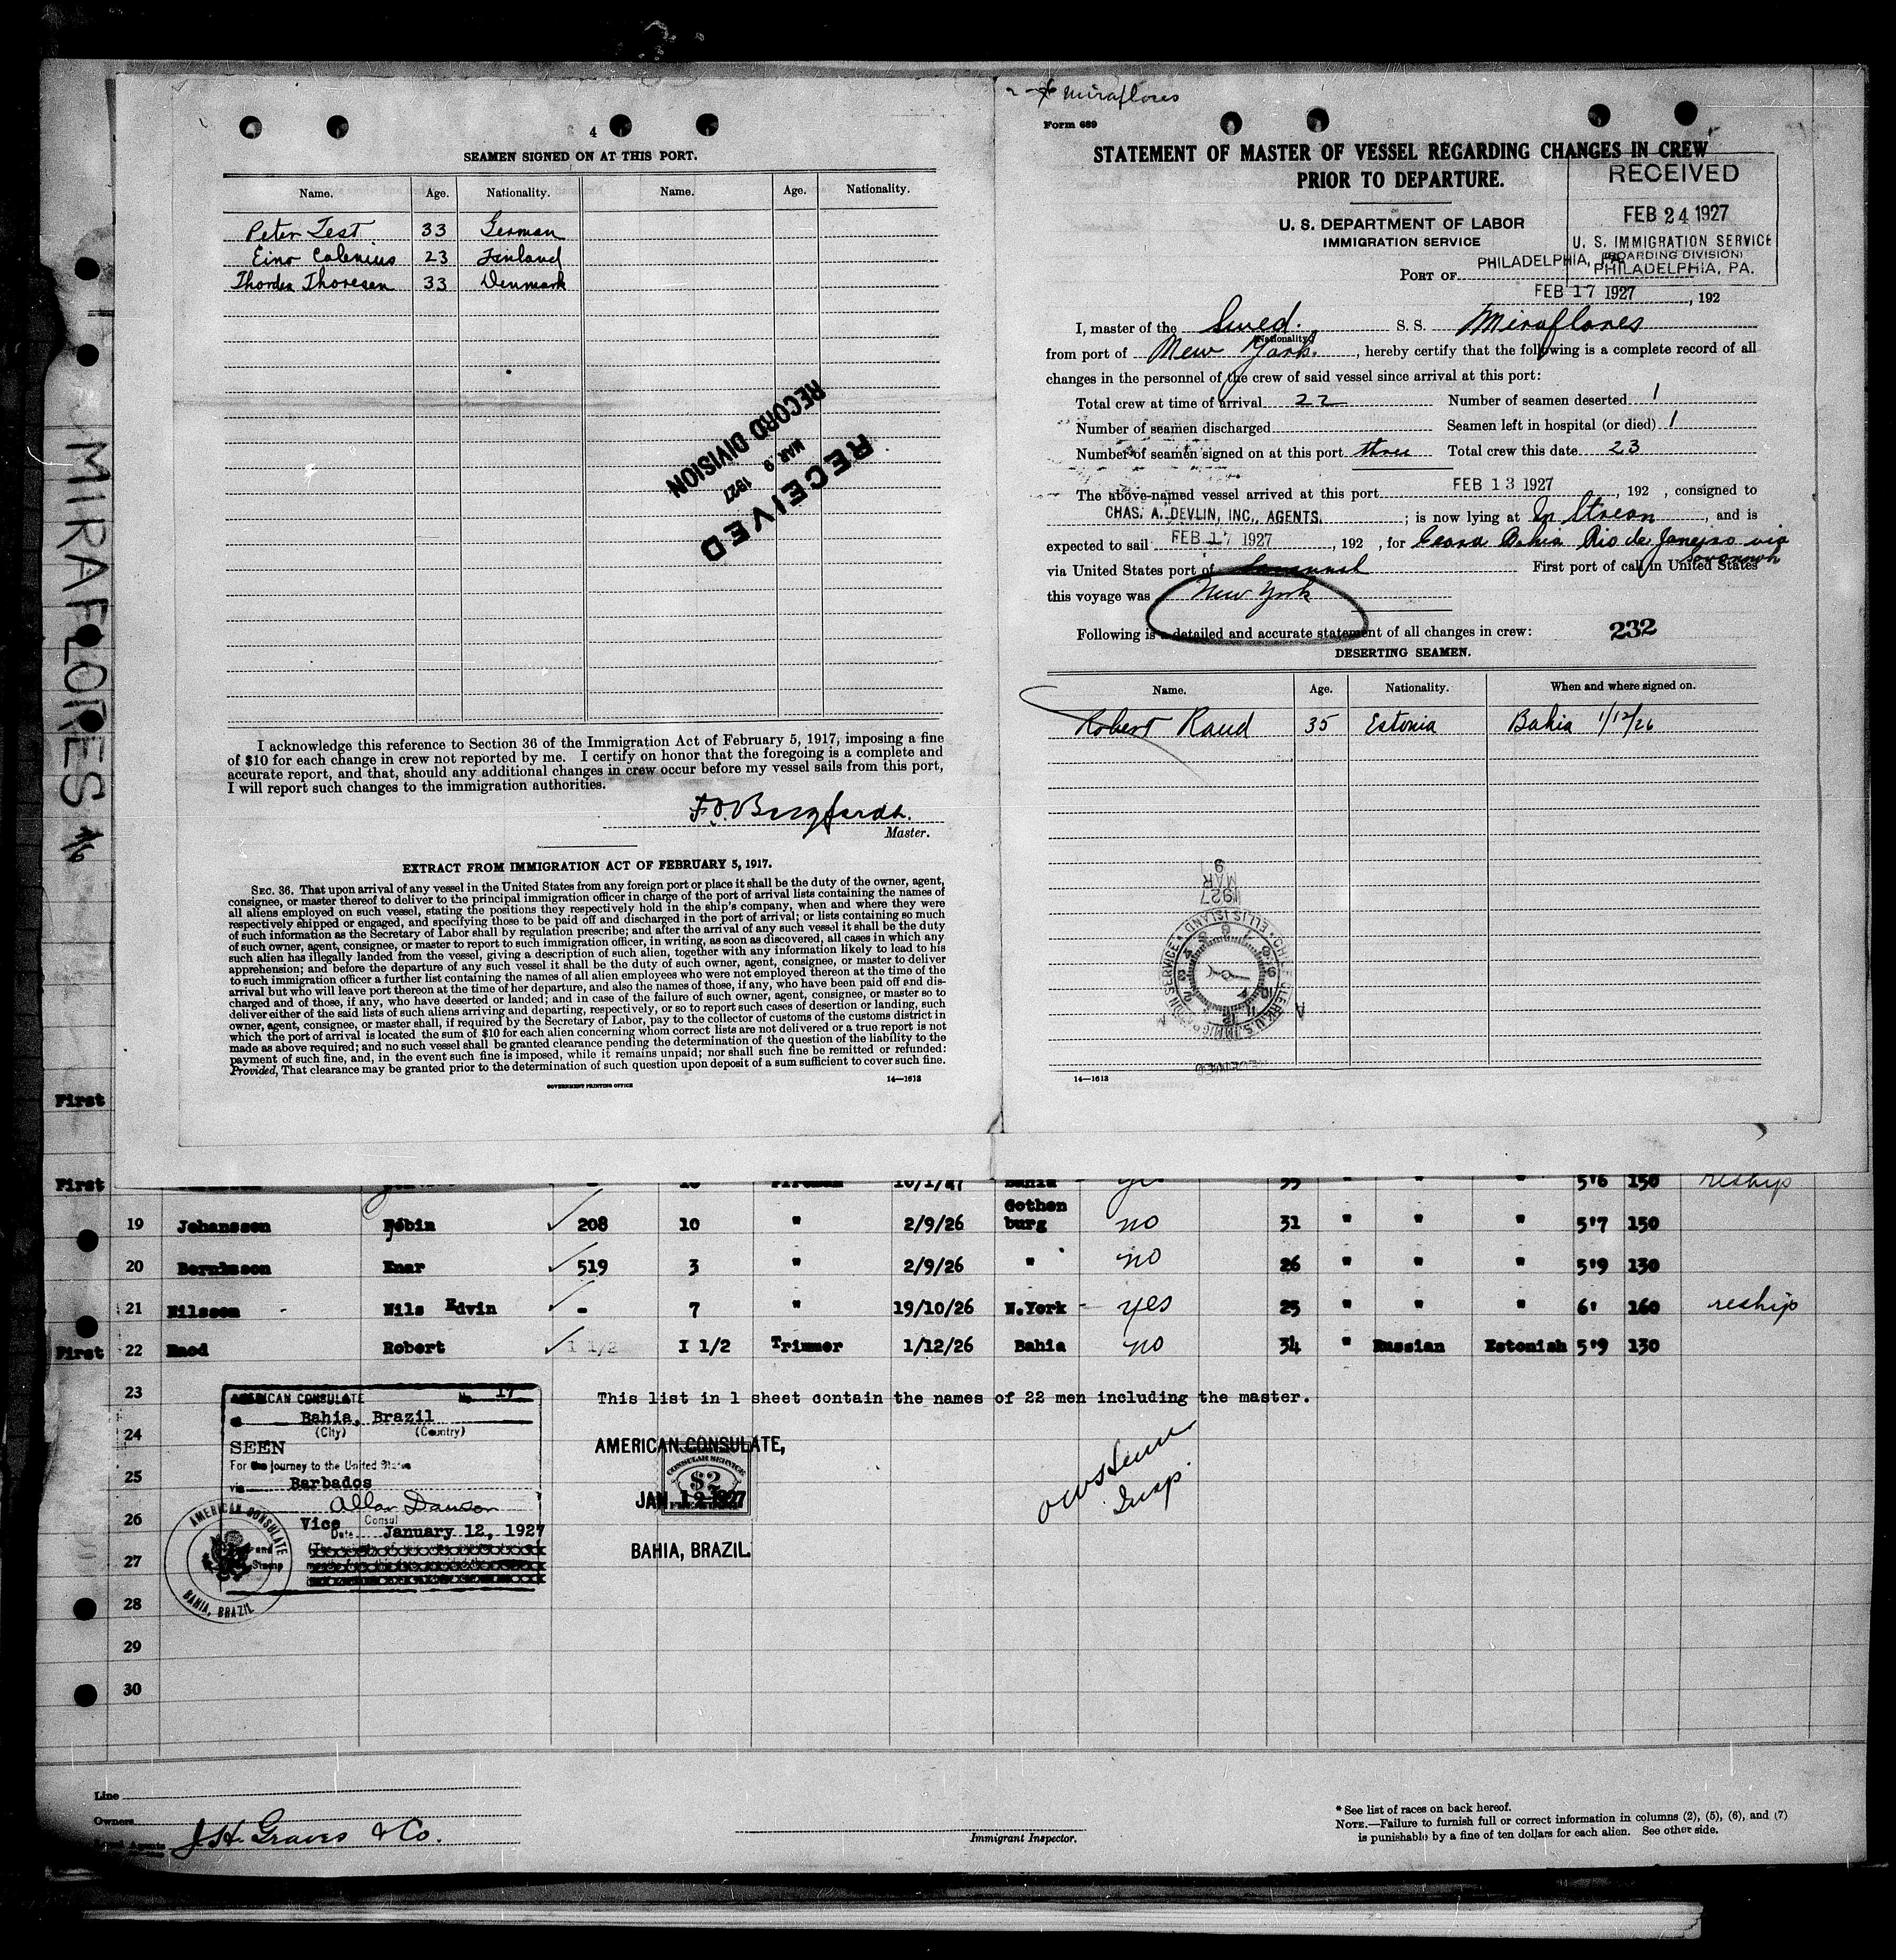 4
SEAMEN SIGNED ON AT THIS PORT.
Name. Age. Nationality. Name. Age. Nationality.
Peter Test 33 German
Eino Calenius 23 Finland
Thoresen 33 Denmark
RECEIVED
MAR 9 1927
RECORD DIVISION
I acknowledge this reference to Section 36 of the Immigration Act of February 5, 1917, imposing a fine
of $10 for each change in crew not reported by me. I certify on honor that the foregoing is a complete and
accurate report, and that, should any additional changes in crew occur before my vessel sails from this port,
I will report such changes to the immigration authorities.
Master.
EXTRACT FROM IMMIGRATION ACT OF FEBRUARY 5, 1917.
SEC. 36. That upon arrival of any vessel in the United States from any foreign port or place it shall be the duty of the owner, agent,
consignee, or master thereof to deliver to the principal immigration officer in charge of the port of arrival lists containing the names of
all aliens employed on such vessel, stating the positions they respectively hold in the ship's company, when and where they were
respectively shipped or engaged, and specifying those to be paid off and discharged in the port of arrival; or lists containing so much
of such information as the Secretary of Labor shall by regulation prescribe; and after the arrival of any such vessel it shall be the duty
of such owner, agent, consignee, or master to report to such immigration officer, in writing, as soon as discovered, all cases in which any
such alien has illegally landed from the vessel, giving a description of such alien, together with any information likely to lead to his
apprehension; and before the departure of any such vessel it shall be the duty of such owner, agent, consignee, or master to deliver
to such immigration officer a further list containing the names of all alien employees who were not employed thereon at the time of the
arrival but who will leave port thereon at the time of her departure, and also the names of those, if any, who have been paid off and dis-
charged and of those, if any, who have deserted or landed; and in case of the failure of such owner, agent, consignee, or master so to
deliver either of the said lists of such aliens arriving and departing, respectively, or so to report such cases of desertion or landing, such
owner, agent, consignee, or master shall, if required by the Secretary of Labor, pay to the collector of customs of the customs district in
which the port of arrival is located the sum of $10 for each alien concerning whom correct lists are not delivered or a true report is not
made as above required; and no such vessel shall be granted clearance pending the determination of the question of the liability to the
payment of such fine, and, in the event such fine is imposed, while it remains unpaid; nor shall such fine be remitted or refunded:
Provided, That clearance may be granted prior to the determination of such question upon deposit of a sum sufficient to cover such fine.
GOVERNMENT PRINTING OFFICE 14—1613
MIRAFLORES
Miraflores
Form 689
STATEMENT OF MASTER OF VESSEL REGARDING CHANGES IN CREW
PRIOR TO DEPARTURE.
RECEIVED
FEB 24 1927
U. S. IMMIGRATION SERVICE
(BOARDING DIVISION)
PHILADELPHIA, PA.
U. S. DEPARTMENT OF LABOR
IMMIGRATION SERVICE
PORT OF PHILADELPHIA, PA.
FEB 17 1927, 192
I, master of the Swed. S. S. Miraflores
(Nationality)
from port of New York, hereby certify that the following is a complete record of all
changes in the personnel of the crew of said vessel since arrival at this port:
Total crew at time of arrival 22 Number of seamen deserted 1
Number of seamen discharged Seamen left in hospital (or died) 1
Number of seamen signed on at this port three Total crew this date 23
The above-named vessel arrived at this port FEB 13 1927, 192 , consigned to
CHAS. A. DEVLIN, INC., AGENTS. ; is now lying at In Stream, and is
expected to sail FEB 17 1927, 192 , for Ceara Bahia Rio de Janeiro via
Savannah
via United States port of Savannah First port of call in United States
this voyage was New York
Following is a detailed and accurate statement of all changes in crew: 232
DESERTING SEAMEN.
Name. Age. Nationality. When and where signed on.
Robert Raud 35 Estonia Bahia 1/12/26
1927
MAR 9
CHIEF CLERK, U.S. IMMIGRATION SERVICE ELLIS ISLAND
14—1613
First
First 10/1/27 Bahia yes 33 " " " 5'6 150 reship
19 Johansson Febin 208 10 " 2/9/26 Gothen burg no 31 " " " 5'7 150
20 Berndsson Enar 519 3 " 2/9/26 " no 26 " " " 5'9 130
21 Nilsson - Nils Edvin - 7 " 19/10/26 N.York - yes 25 " " " 6' 160 reship
First 22 Raod Robert 1 1/2 I 1/2 Trimmer 1/12/26 Bahia no 34 " Russian Estonish 5'9 130
23 This list in 1 sheet contain the names of 22 men including the master.
24
25
26
27
28
29
30
AMERICAN CONSULATE No. 17
Bahia, Brazil
(City) (Country)
SEEN
For the journey to the United States
via Barbados
Allan Dawson
Vice Consul
Date January 12, 1927
and
Stamp
AMERICAN CONSULATE
BAHIA, BRAZIL
AMERICAN CONSULATE,
CONSULAR SERVICE
$2
JAN 12 1927
BAHIA, BRAZIL.
Insp.
Line
Owners
Local Agents J.H. Graves & Co.
Immigrant Inspector.
* See list of races on back hereof.
NOTE.—Failure to furnish full or correct information in columns (2), (5), (6), and (7)
is punishable by a fine of ten dollars for each alien. See other side.